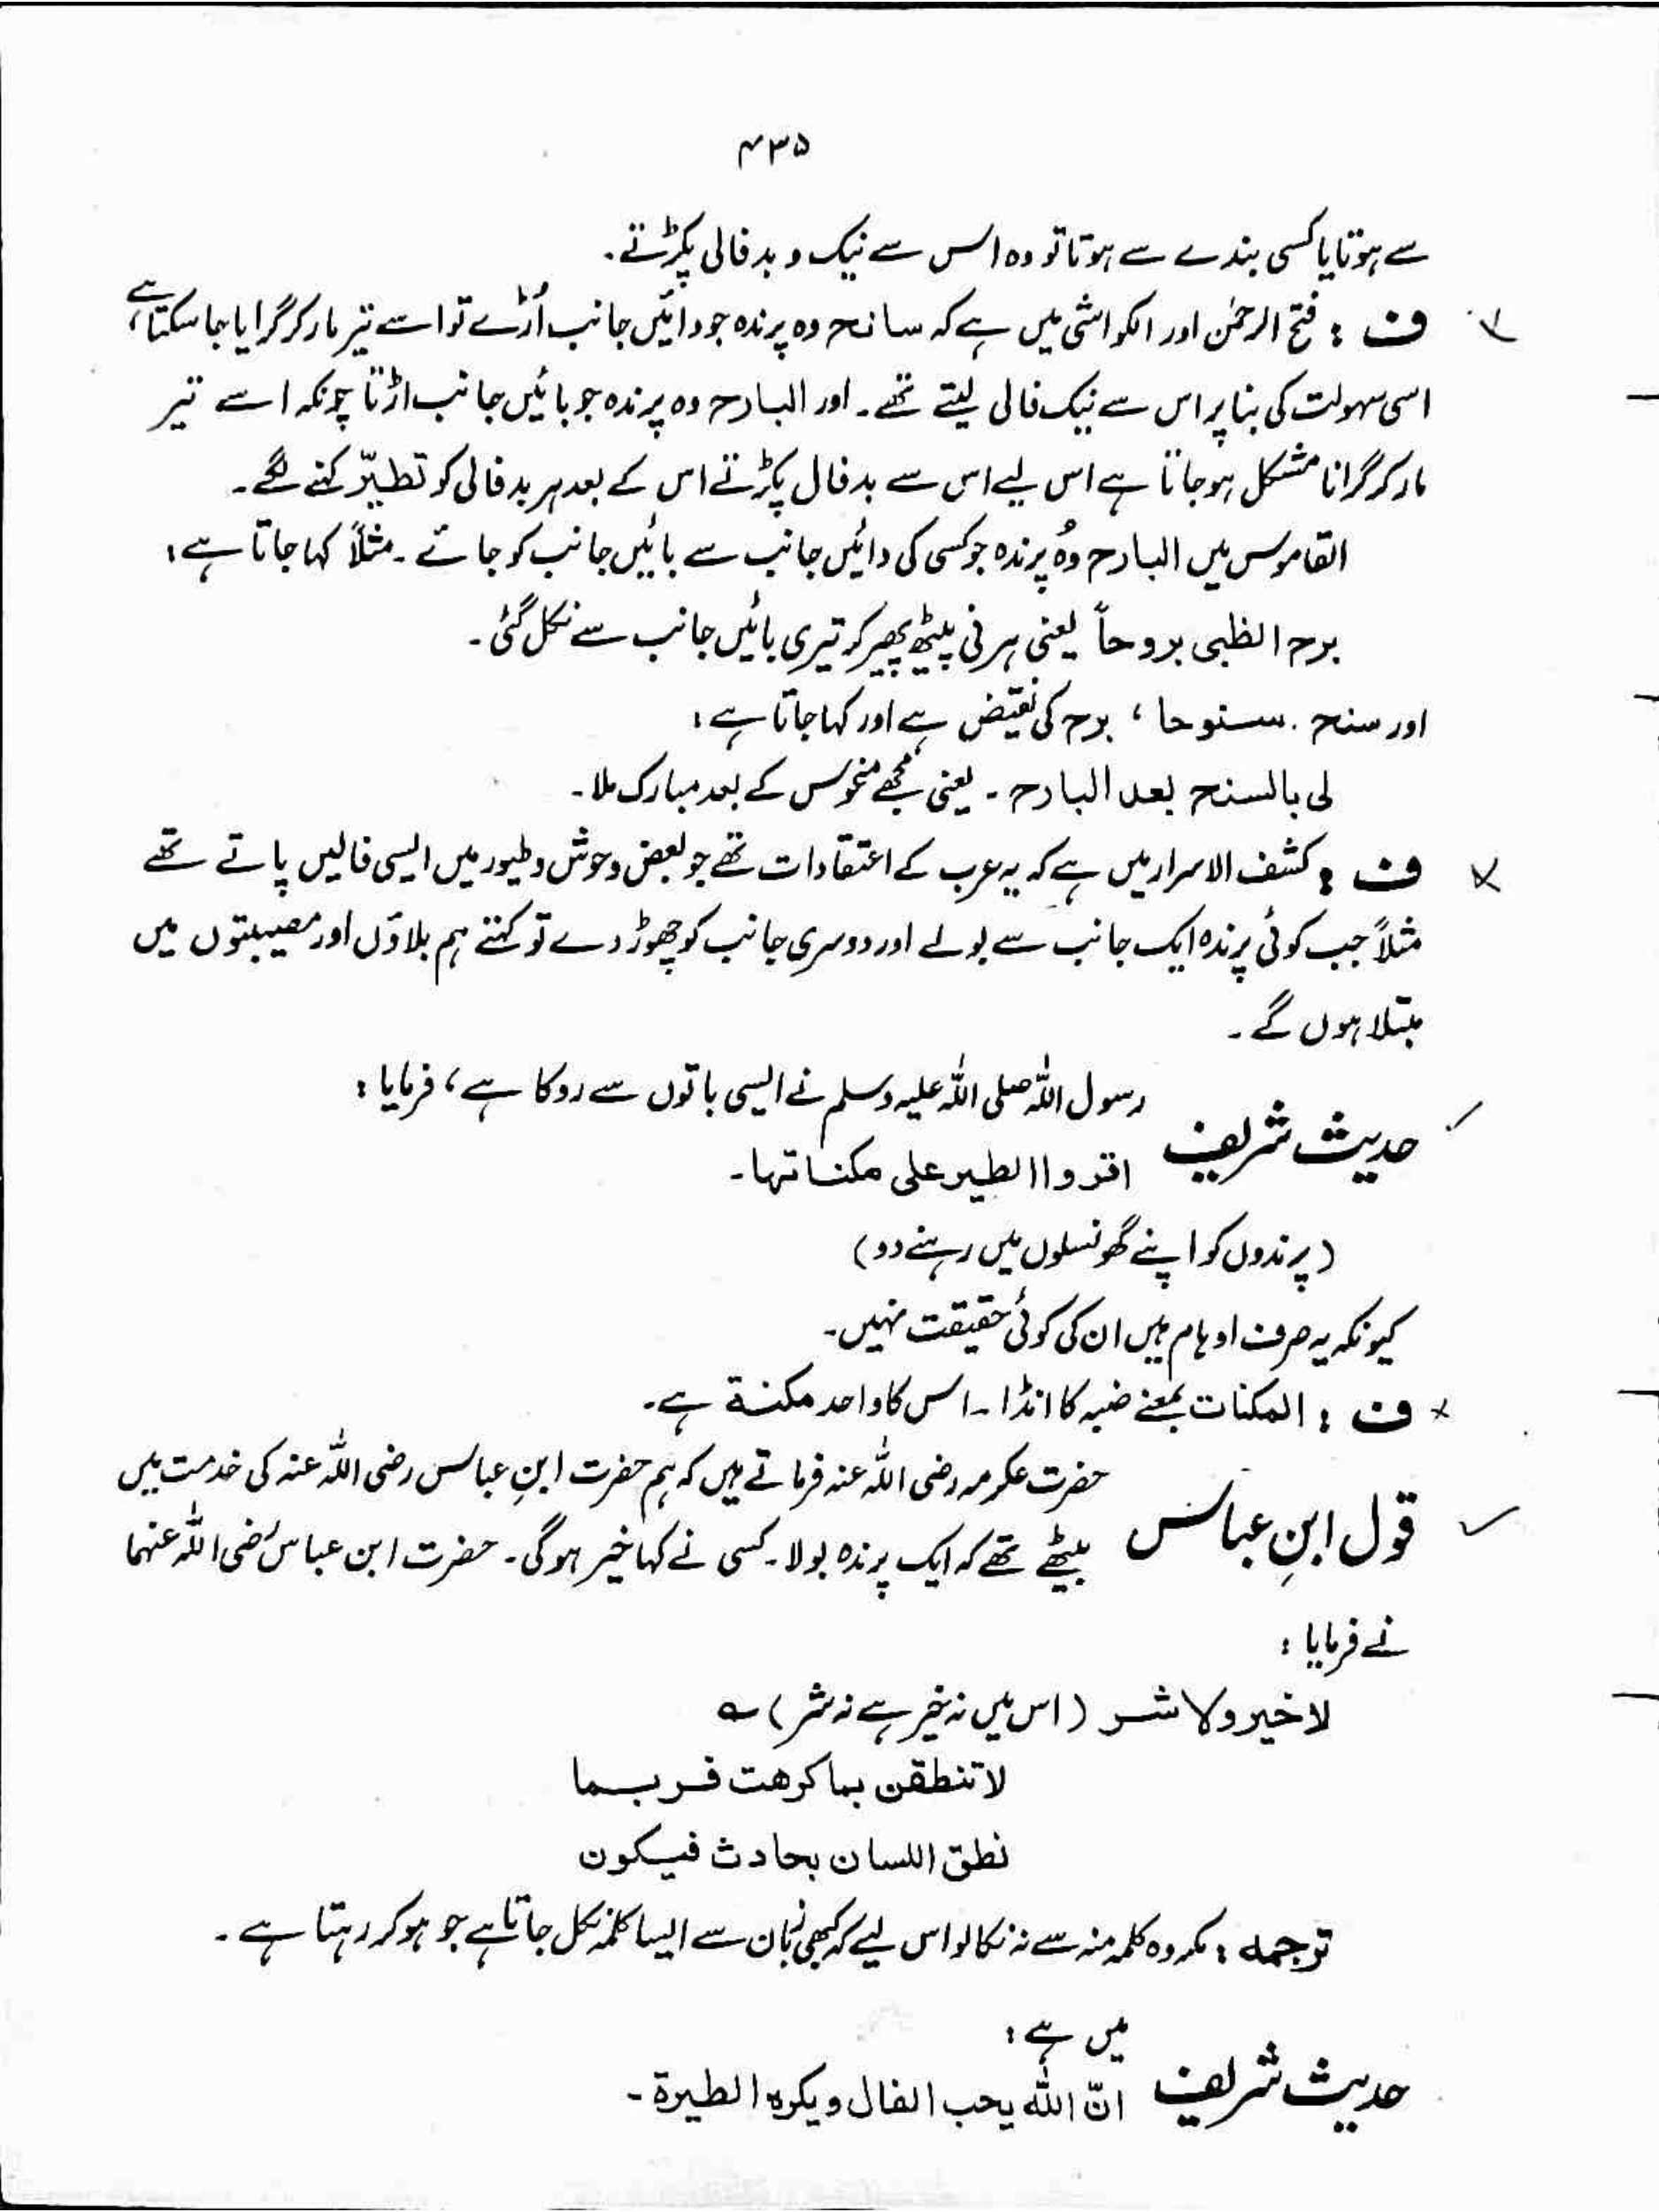 ۴۳۵
سے ہوتا یا کسی بندے سے ہوتا تو وہ اس سے نیک و بد فالی پکڑتے۔
ف : فتح الرحمٰن اور الکواشی میں ہے کہ سانح وہ پرندہ جو دائیں جانب اُڑے تو اسے تیر مار کر گرایا جا سکتا ہے،
اسی سہولت کی بنا پر اس سے نیک فالی لیتے تھے۔ اور البارح وہ پرندہ جو بائیں جانب اڑتا چونکہ اسے تیر
مار کر گرانا مشکل ہو جاتا ہے اس لیے اس سے بد فال پکڑتے اس کے بعد ہر بد فالی کو تطیّر کہنے لگے۔
القاموس میں البارح وہُ پرندہ جو کسی کی دائیں جانب سے بائیں جانب کو جائے ۔ مثلاً کہا جاتا ہے :
برح الظبی بروحاً یعنی ہرنی پیٹھ پھیر کر تیری بائیں جانب سے نکل گئی۔
اور سنح ۔ سنوحا ، برح کی نقیض ہے اور کہا جاتا ہے :
لی بالسنح بعد البارح ۔ یعنی مجھے منحوس کے بعد مبارک ملا۔
ف : کشف الاسرار میں ہے کہ یہ عرب کے اعتقادات تھے جو بعض وحوش و طیور میں ایسی فالیں پاتے تھے
مثلاً جب کوئی پرندہ ایک جانب سے بولے اور دوسری جانب کو چھوڑ دے تو کہتے ہم بلاؤں اور مصیبتوں میں
مبتلا ہوں گے ۔
رسول اللہ صلی اللہ علیہ وسلم نے ایسی باتوں سے روکا ہے ، فرمایا :
حدیث شریف
اقروا الطیر علی مکناتہا۔
(پرندوں کو اپنے گھونسلوں میں رہنے دو)
کیونکہ یہ صرف اوہام ہیں ان کی کوئی حقیقت نہیں۔
ف : المکنات بمعنے ضبہ کا انڈا ۔ اس کا واحد مکنۃ ہے۔
حضرت عکرمہ رضی اللہ عنہ فرماتے ہیں کہ ہم حضرت ابنِ عباس رضی اللہ عنہ کی خدمت میں
قول ابنِ عباس
بیٹھے تھے کہ ایک پرندہ بولا ۔ کسی نے کہا خیر ہو گی۔ حضرت ابن عباس رضی اللہ عنہما
نے فرمایا :
لا خیر ولا شر (اس میں نہ خیر ہے نہ شر) ؎
لا تنطقن بما کرھت فربما
نطق اللسان بحادث فیکون
ترجمہ : مکروہ کلمہ منہ سے نہ نکالو اس لیے کہ کبھی زبان سے ایسا کلمہ نکل جاتا ہے جو ہو کر رہتا ہے ۔
میں ہے :
حدیث شریف
انّ اللہ یحب الفال و یکرہ الطیرۃ ۔